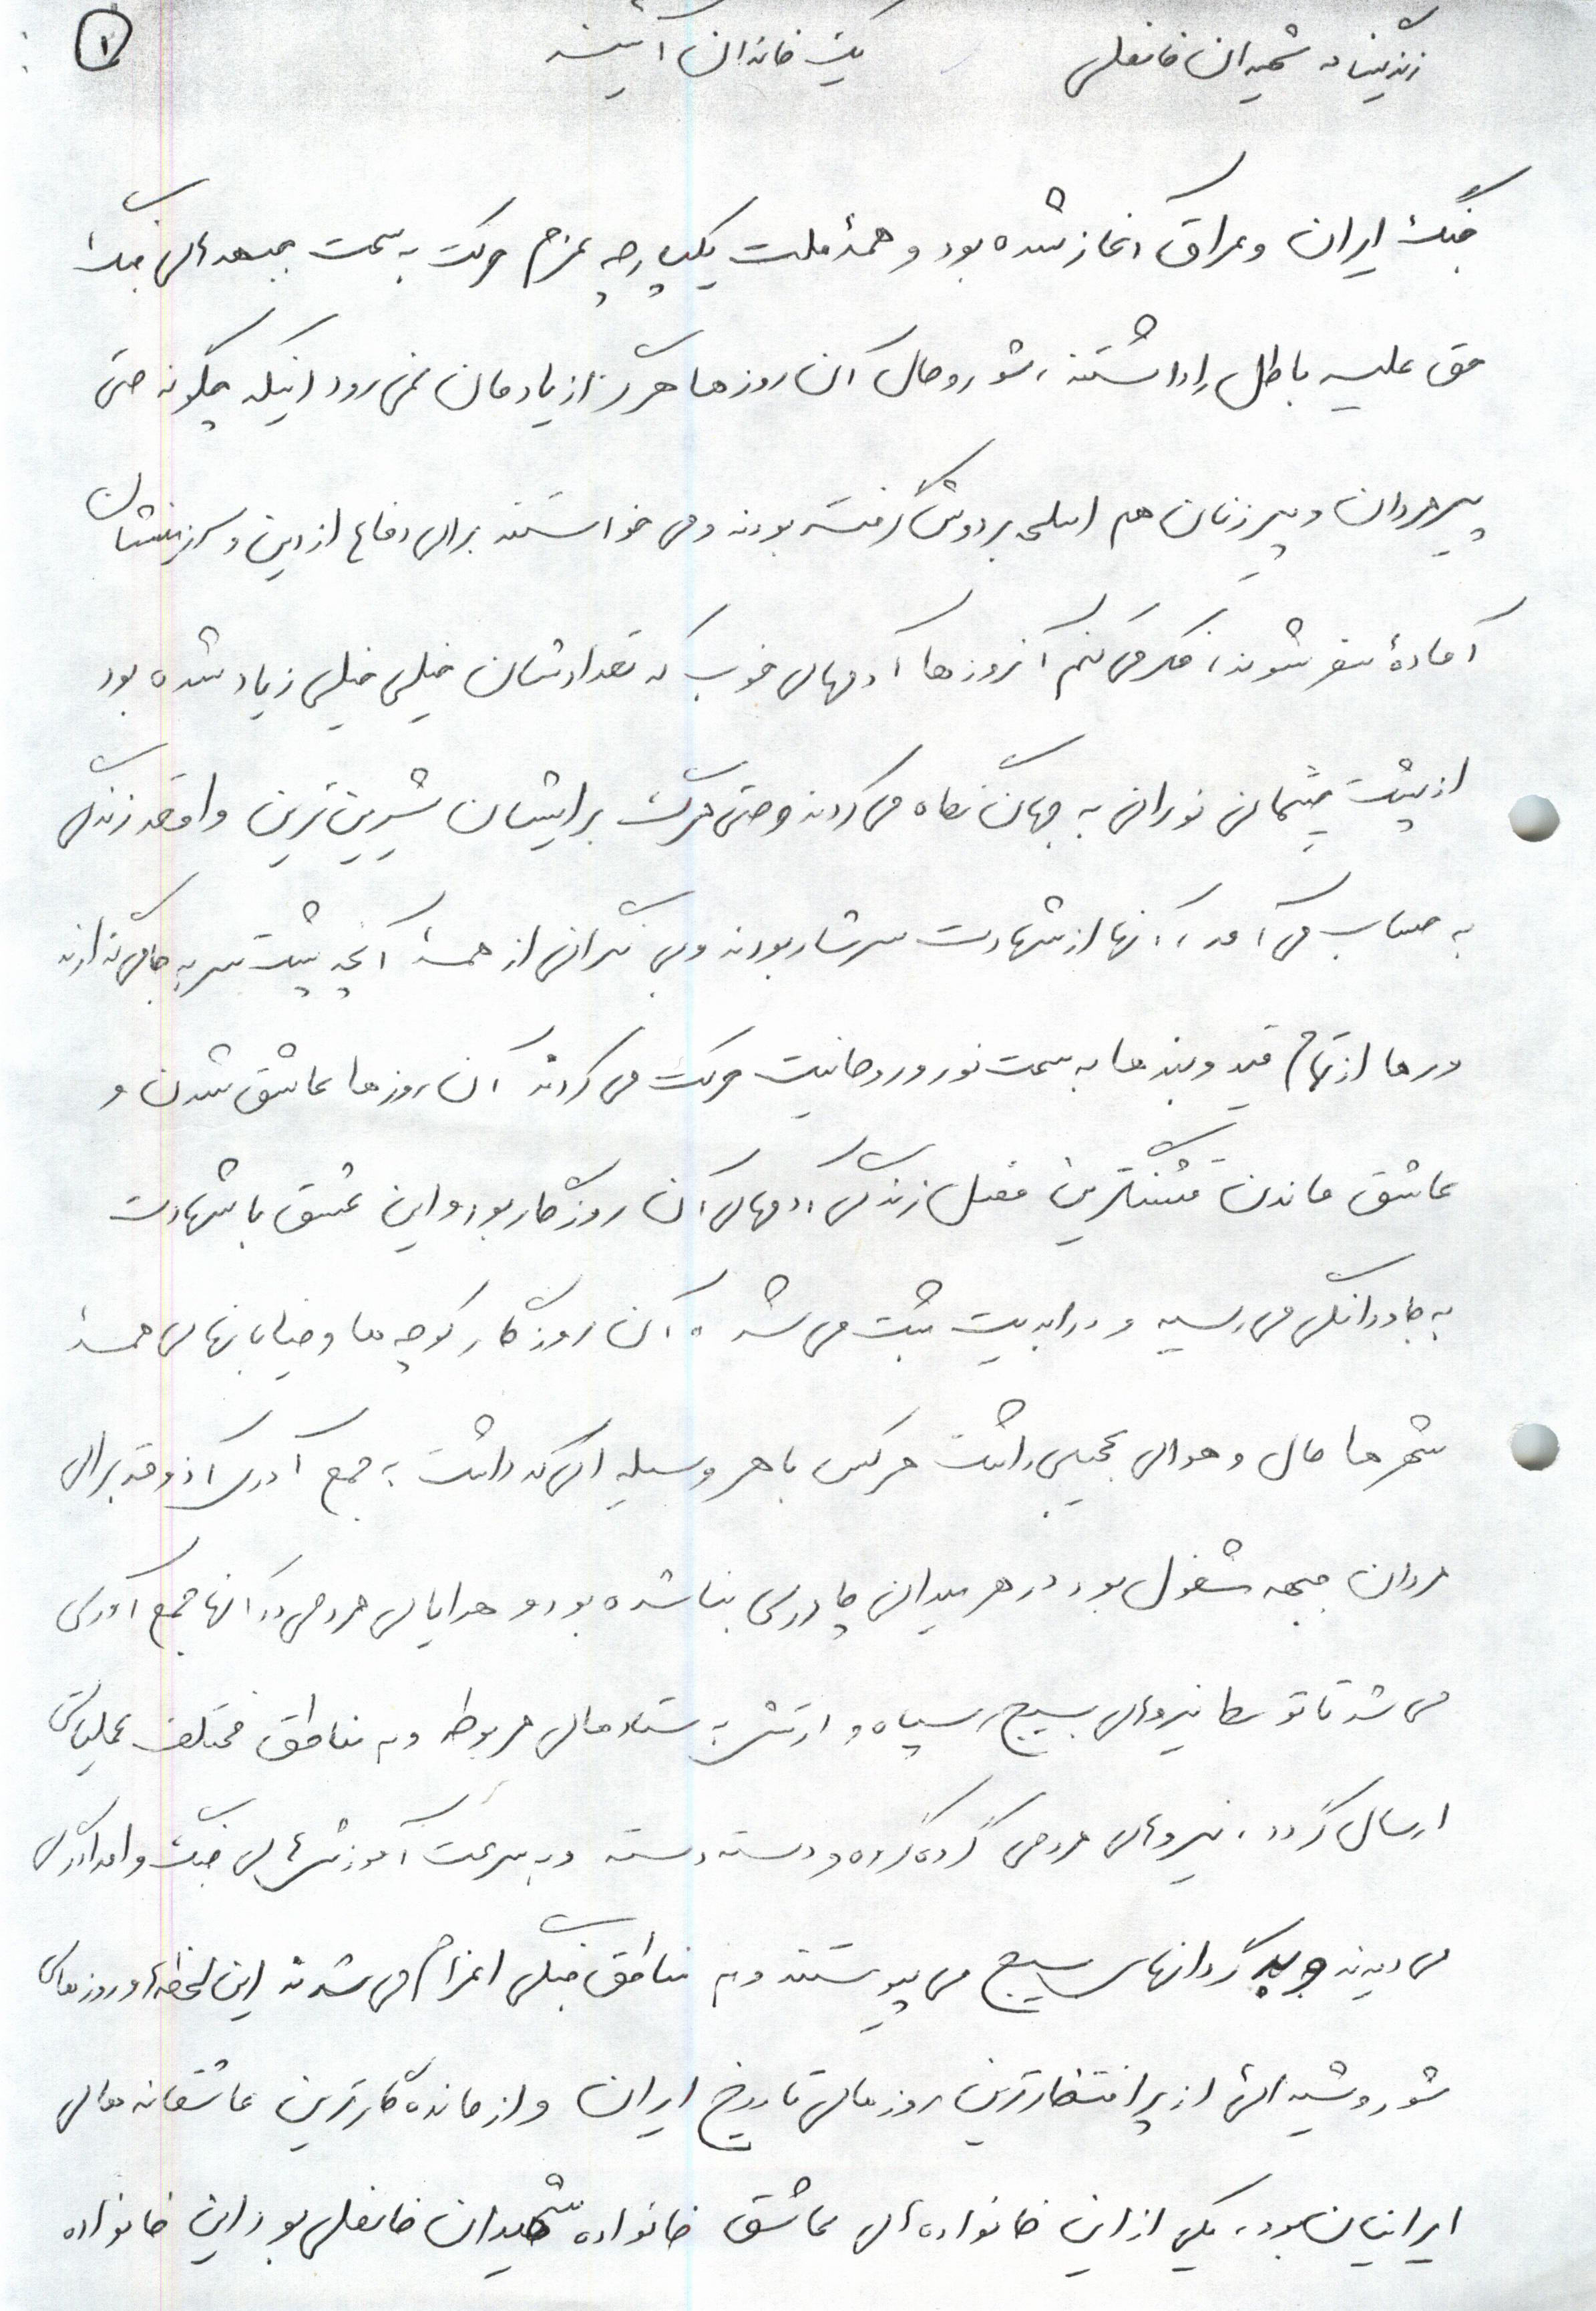 ۱
زندگینامه شهیدان خانعلی یک خاندان آتشین
جنگ ایران و عراق آغاز شده بود و همهٔ ملت یکپارچه عزم حرکت به سمت جبهه‌های جنگ
حق علیه باطل را داشتند، شور و حال آن روزها هرگز از یادمان نمی رود اینکه چگونه حتی
پیرمردان و پیرزنان هم اسلحه بر دوش گرفته بودند و می خواستند برای دفاع از دین و سرزمینشان
آمادهٔ سفر شوند، فکر می کنم آنروزها آدمهای خوب که تعدادشان خیلی خیلی زیاد شده بود
از پشت چشمانی نورانی به جهان نگاه می کردند و حتی مرگ برایشان شیرین ترین واقعه زندگی
به حساب می آمد، آنها از شهادت سرشار بودند و بی نگرانی از همهٔ آنچه پشت سر به جا می گذارند
و رها از تمام قید و بندها به سمت نور و روحانیت حرکت می کردند آن روزها عاشق شدن و
عاشق ماندن قشنگترین فصل زندگی آدمهای آن روزگار بود و این عشق با شهادت
به جاودانگی می رسید و در ابدیت ثبت می شد. آن روزگار کوچه ها و خیابانهای همهٔ
شهرها حال و هوای عجیبی داشت هر کس با هر وسیله ای که داشت به جمع آوری آذوقه برای
مردان جبهه مشغول بود در هر میدانی چادری بنا شده بود و هدایای مردمی در آنها جمع آوری
می شد تا توسط نیروهای بسیج، سپاه و ارتش به ستادهای مربوطه و به مناطق مختلف عملیاتی
ارسال گردد، نیروهای مردمی گروه گروه و دسته دسته و به سرعت آموزشهای جنگ و امدادگری
می دیدند و به گردانهای بسیج می پیوستند و به مناطق جنگی اعزام می شدند این لحظه‌ها و روزهای
شور و شیدائی از پرافتخارترین روزهای تاریخ ایران و از ماندگارترین عاشقانه های
ایرانیان بود، یکی از این خانواده های عاشق خانواده شهیدان خانعلی بود این خانواده